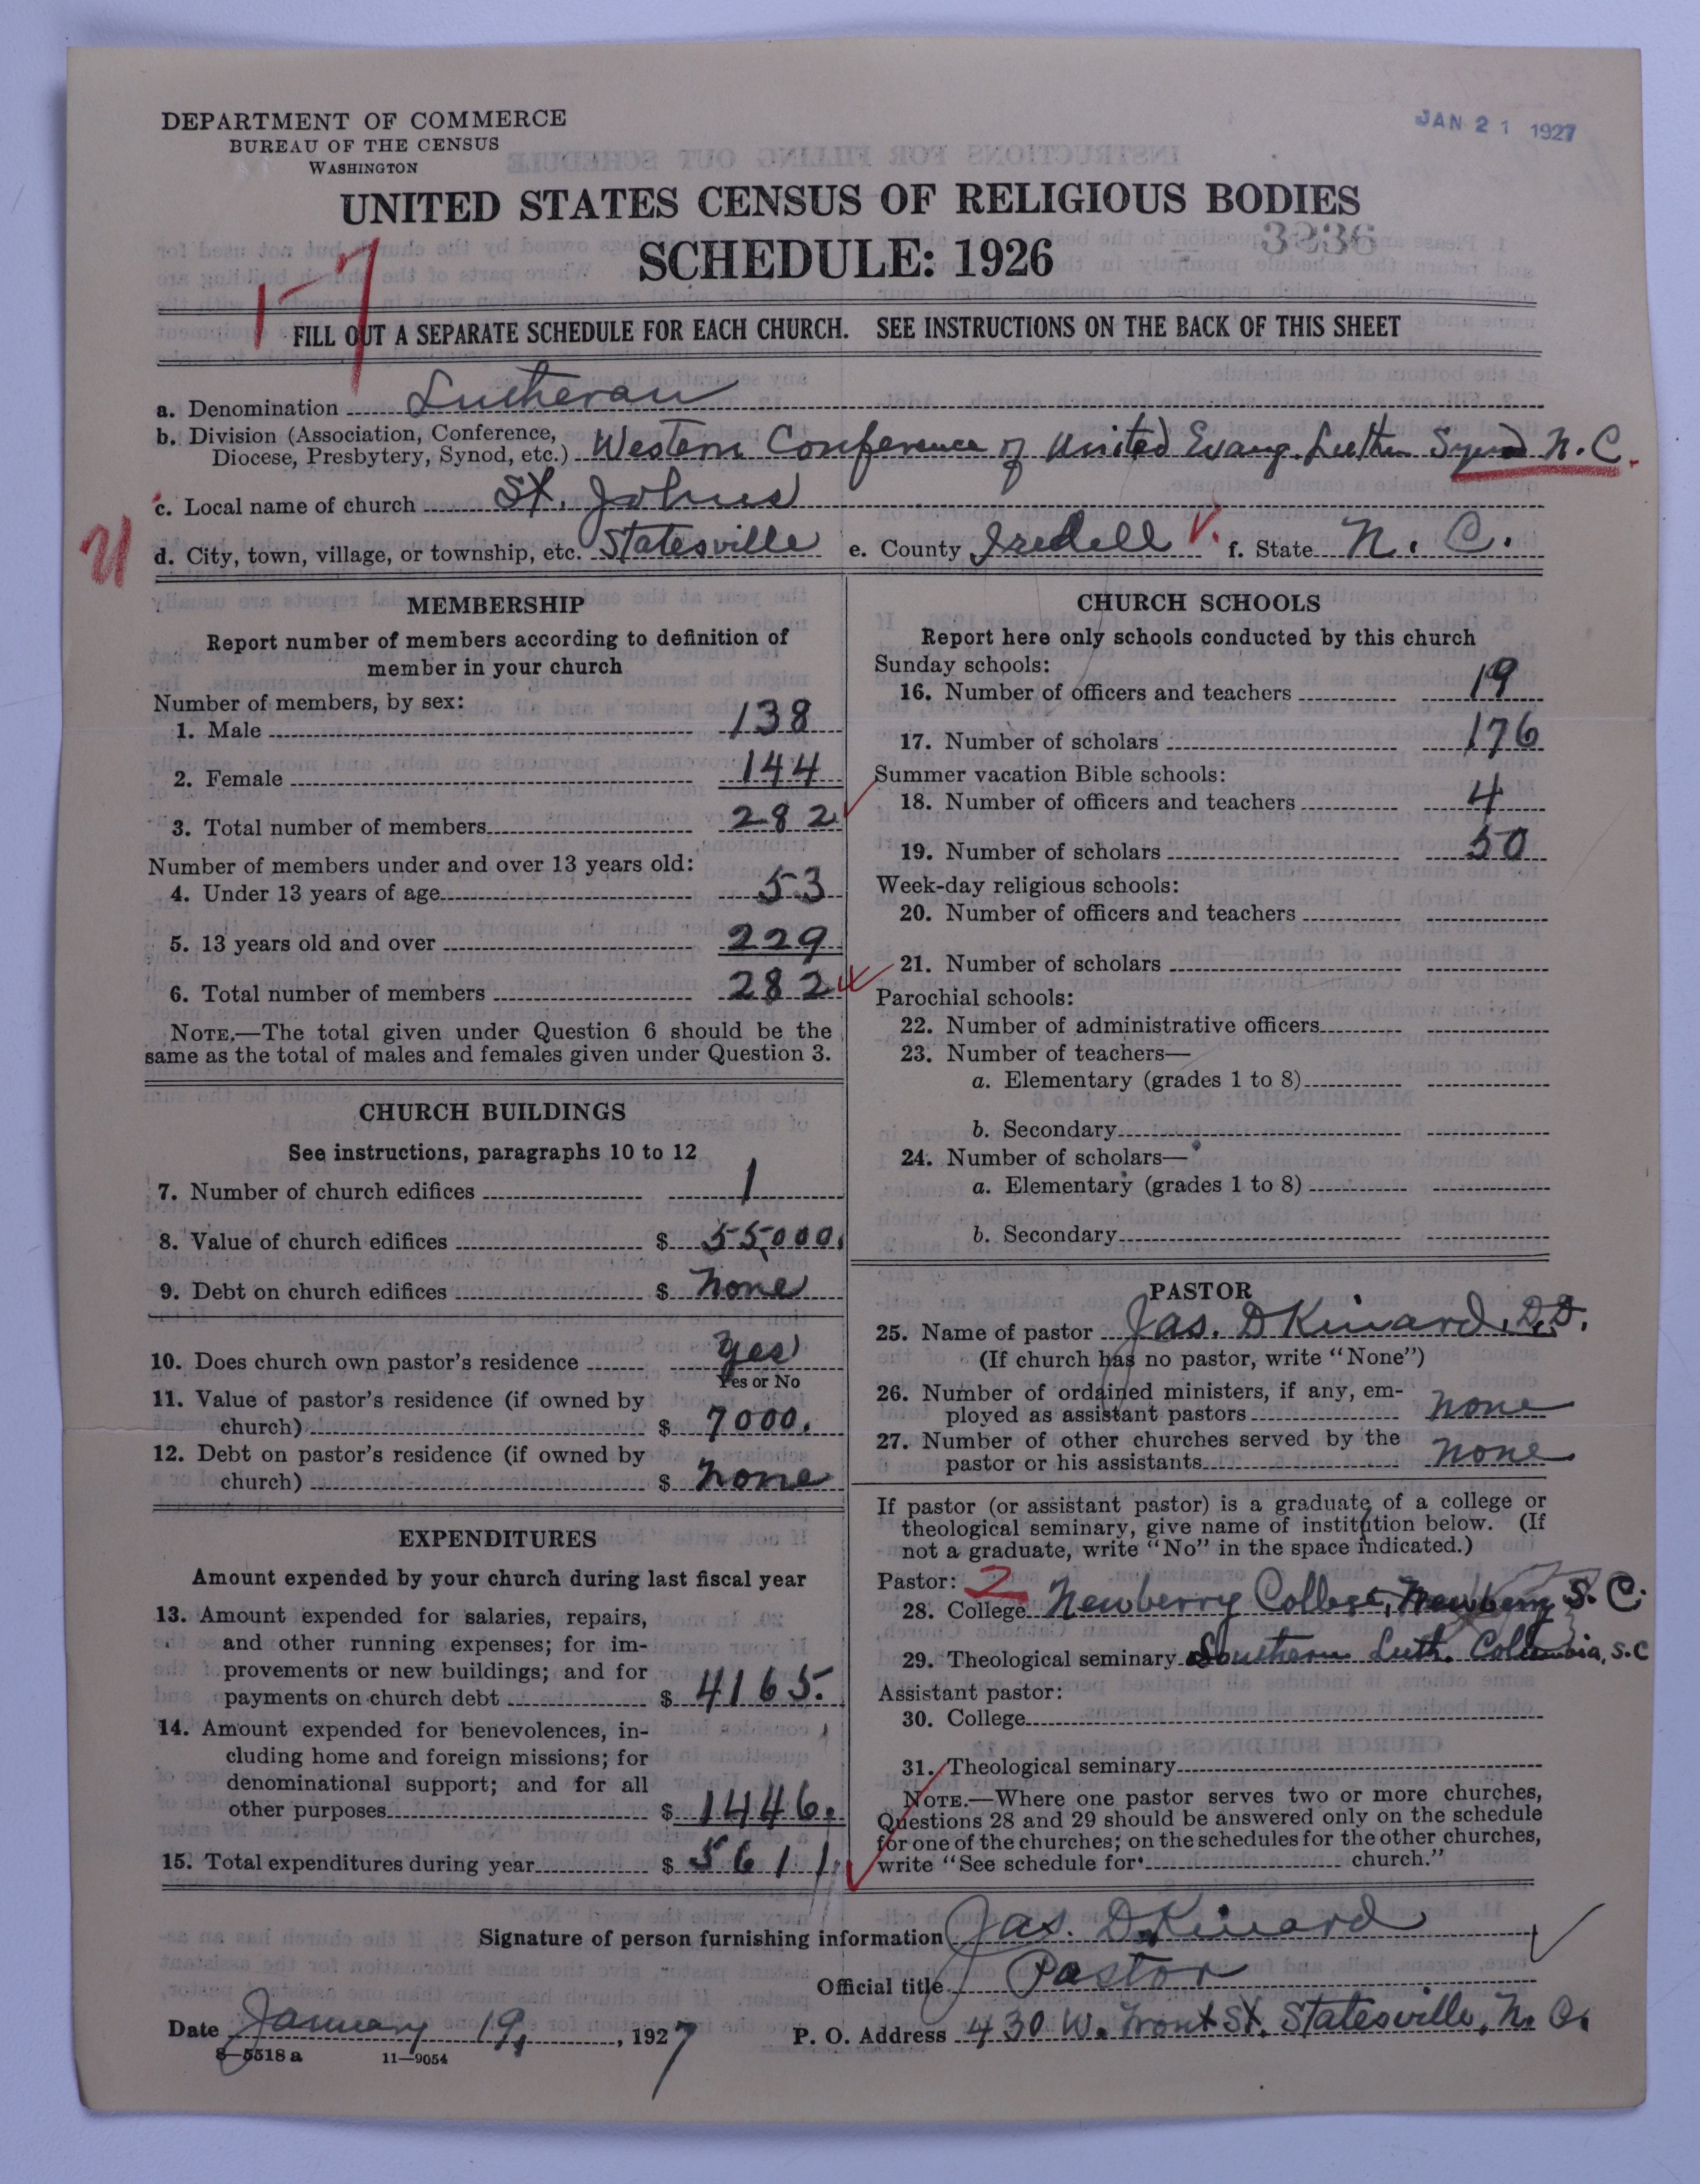 JAN 21 1927
DEPARTMENT OF COMMERCE
BUREAU OF THE CENSUS
WASHINGTON
UNITED STATES CENSUS OF RELIGIOUS BODIES
SCHEDULE: 1926
3236
1-7
FILL OUT A SEPARATE SCHEDULE FOR EACH CHURCH. SEE INSTRUCTIONS ON THE BACK OF THIS SHEET
a. Denomination Lutheran
b. Division (Association, Conference,
Diocese, Presbytery, Synod, etc.) Western Conference of United Evang. Luthn Synod N.C.
c. Local name of church St. Johns
d. City, town, village, or township, etc. Statesville e. County Iredell f. State N. C.
MEMBERSHIP
Report number of members according to definition of
member in your church
Number of members, by sex:
1. Male 138
2. Female 144
3. Total number of members 282
Number of members under and over 13 years old:
4. Under 13 years of age 53
5. 13 years old and over 229
6. Total number of members 282
NOTE.—The total given under Question 6 should be the
same as the total of males and females given under Question 3.
CHURCH BUILDINGS
See instructions, paragraphs 10 to 12
7. Number of church edifices 1
8. Value of church edifices $ 55,000.
9. Debt on church edifices $ None
10. Does church own pastor's residence Yes
Yes or No
11. Value of pastor's residence (if owned by
church) $ 7000.
12. Debt on pastor's residence (if owned by
church) $ None
EXPENDITURES
Amount expended by your church during last fiscal year
13. Amount expended for salaries, repairs,
and other running expenses; for im-
provements or new buildings; and for
payments on church debt $ 4165.
14. Amount expended for benevolences, in-
cluding home and foreign missions; for
denominational support; and for all
other purposes $ 1446.
15. Total expenditures during year $ 5611.
CHURCH SCHOOLS
Report here only schools conducted by this church
Sunday schools:
16. Number of officers and teachers 19
17. Number of scholars 176
Summer vacation Bible schools:
18. Number of officers and teachers 4
19. Number of scholars 50
Week-day religious schools:
20. Number of officers and teachers
21. Number of scholars
Parochial schools:
22. Number of administrative officers
23. Number of teachers—
a. Elementary (grades 1 to 8)
b. Secondary
24. Number of scholars—
a. Elementary (grades 1 to 8)
b. Secondary
PASTOR
25. Name of pastor Jas. D Kinard, D.D.
(If church has no pastor, write "None")
26. Number of ordained ministers, if any, em-
ployed as assistant pastors None
27. Number of other churches served by the
pastor or his assistants None
If pastor (or assistant pastor) is a graduate of a college or
theological seminary, give name of institution below. (If
not a graduate, write "No" in the space indicated.)
Pastor: 2
28. College Newberry College, Newberry S. C.
29. Theological seminary Southern Luth. Columbia, S.C
Assistant pastor:
30. College
31. Theological seminary
NOTE.—Where one pastor serves two or more churches,
Questions 28 and 29 should be answered only on the schedule
for one of the churches; on the schedules for the other churches,
write "See schedule for church."
Signature of person furnishing information Jas. D. Kinard
Official title Pastor
Date January 19, 1927 P. O. Address 430 W. Front St. Statesville, N. C.
8—5518 a 11—9054